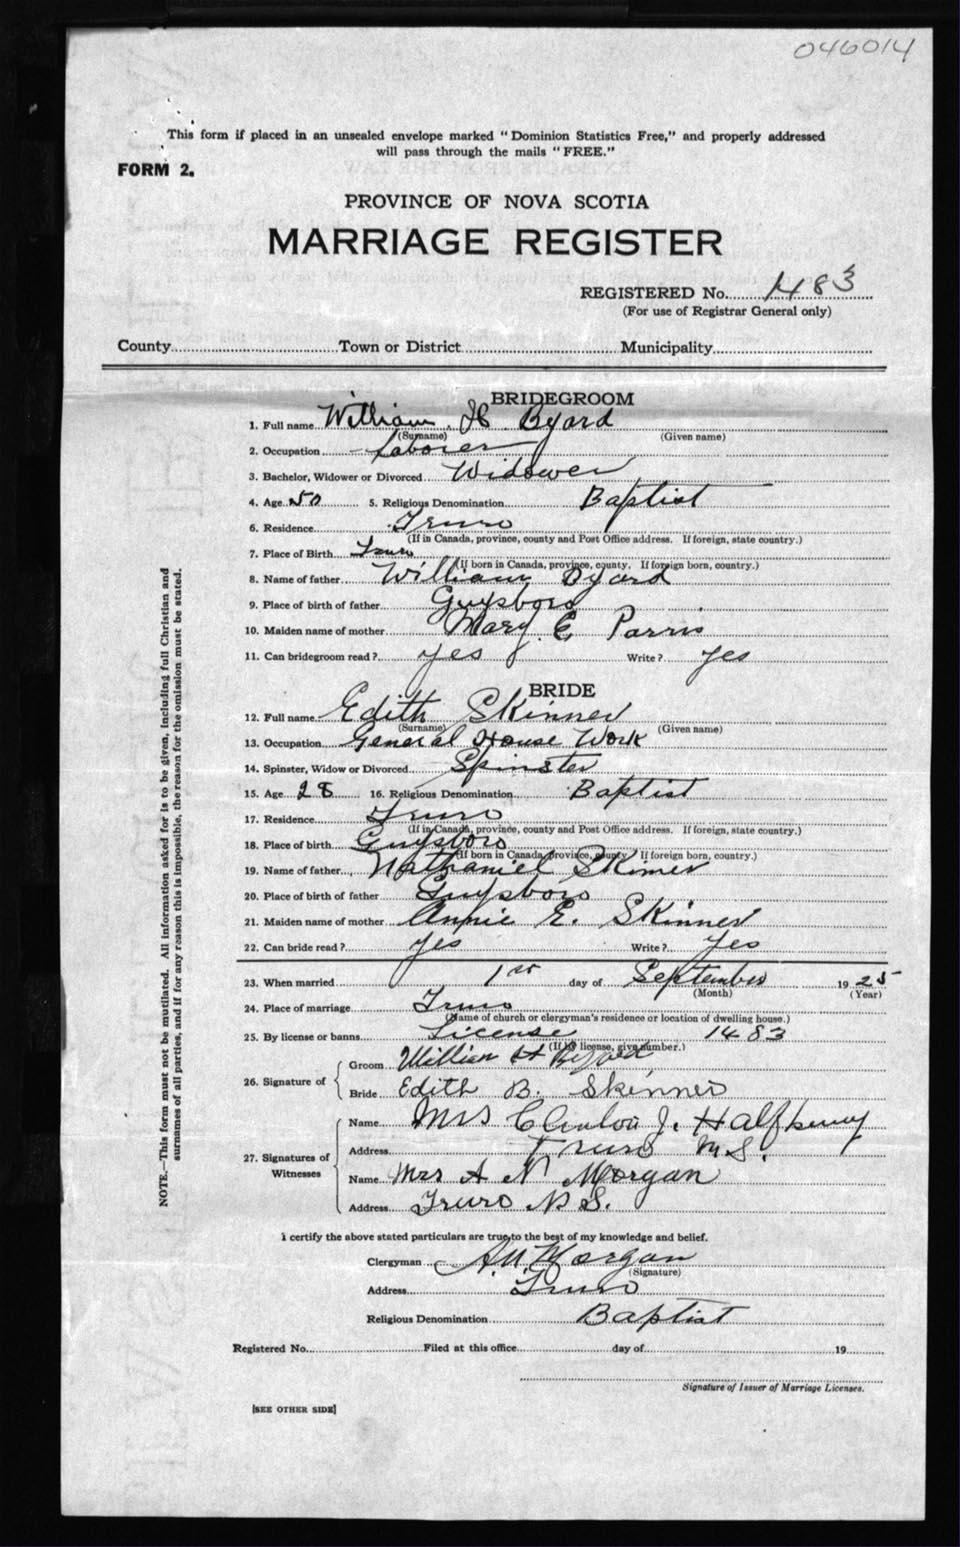 046014
This form if placed in an unsealed envelope marked "Dominion Statistics Free," and properly addressed
will pass through the mails "FREE."
FORM 2.
PROVINCE OF NOVA SCOTIA
MARRIAGE REGISTER
REGISTERED No. 1483
(For use of Registrar General only)
County Town or District Municipality
BRIDEGROOM
1. Full name William H Byard
(Surname) (Given name)
2. Occupation Laborer
3. Bachelor, Widower or Divorced Widower
4. Age 50 5. Religious Denomination Baptist
6. Residence Truro
(If in Canada, province, county and Post Office address. If foreign, state country.)
7. Place of Birth Truro
(If born in Canada, province, county. If foreign born, country.)
8. Name of father William Byard
9. Place of birth of father Guysboro
10. Maiden name of mother Mary E Parris
11. Can bridegroom read? yes Write? yes
BRIDE
12. Full name Edith Skinner
(Surname) (Given name)
13. Occupation General House Work
14. Spinster, Widow or Divorced Spinster
15. Age 28 16. Religious Denomination Baptist
17. Residence Truro
(If in Canada, province, county and Post Office address. If foreign, state country.)
18. Place of birth Guysboro
(If born in Canada, province, county. If foreign born, country.)
19. Name of father Nathaniel Skinner
20. Place of birth of father Guysboro
21. Maiden name of mother Annie E. Skinner
22. Can bride read? yes Write? yes
23. When married 1st day of September 1925
(Month) (Year)
24. Place of marriage Truro
(Name of church or clergyman's residence or location of dwelling house.)
25. By license or banns License 1483
(If by license, give number.)
26. Signature of Groom William H Byard
Bride Edith B. Skinner
27. Signatures of Witnesses
Name Mrs Clinton J. Halfkenny
Address Truro N.S.
Name Mrs A N Morgan
Address Truro N S.
I certify the above stated particulars are true to the best of my knowledge and belief.
Clergyman A.N. Morgan
(Signature)
Address Truro
Religious Denomination Baptist
Registered No. Filed at this office day of 19
Signature of Issuer of Marriage Licenses.
[SEE OTHER SIDE]
NOTE.—This form must not be mutilated. All information asked for is to be given, including full Christian and
surnames of all parties, and if for any reason this is impossible, the reason for the omission must be stated.